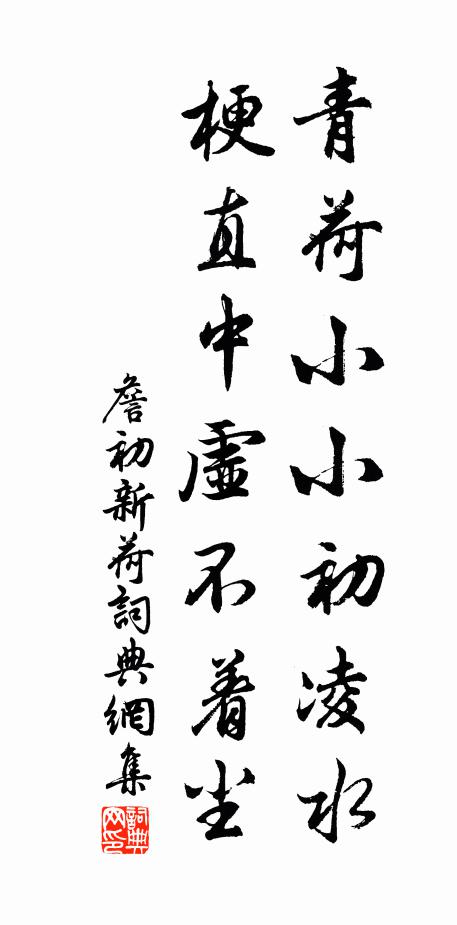 青荷小小初凌水
梗直中虛不着尘
詹初新荷詞典網集
詞典网印